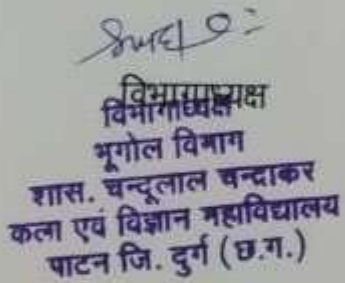 विभागाध्यक्ष
विभागाध्यक्ष
भूगोल विभाग
शास. चन्दूलाल चन्द्राकर
कला एवं विज्ञान महाविद्यालय
पाटन जि. दुर्ग (छ.ग.)